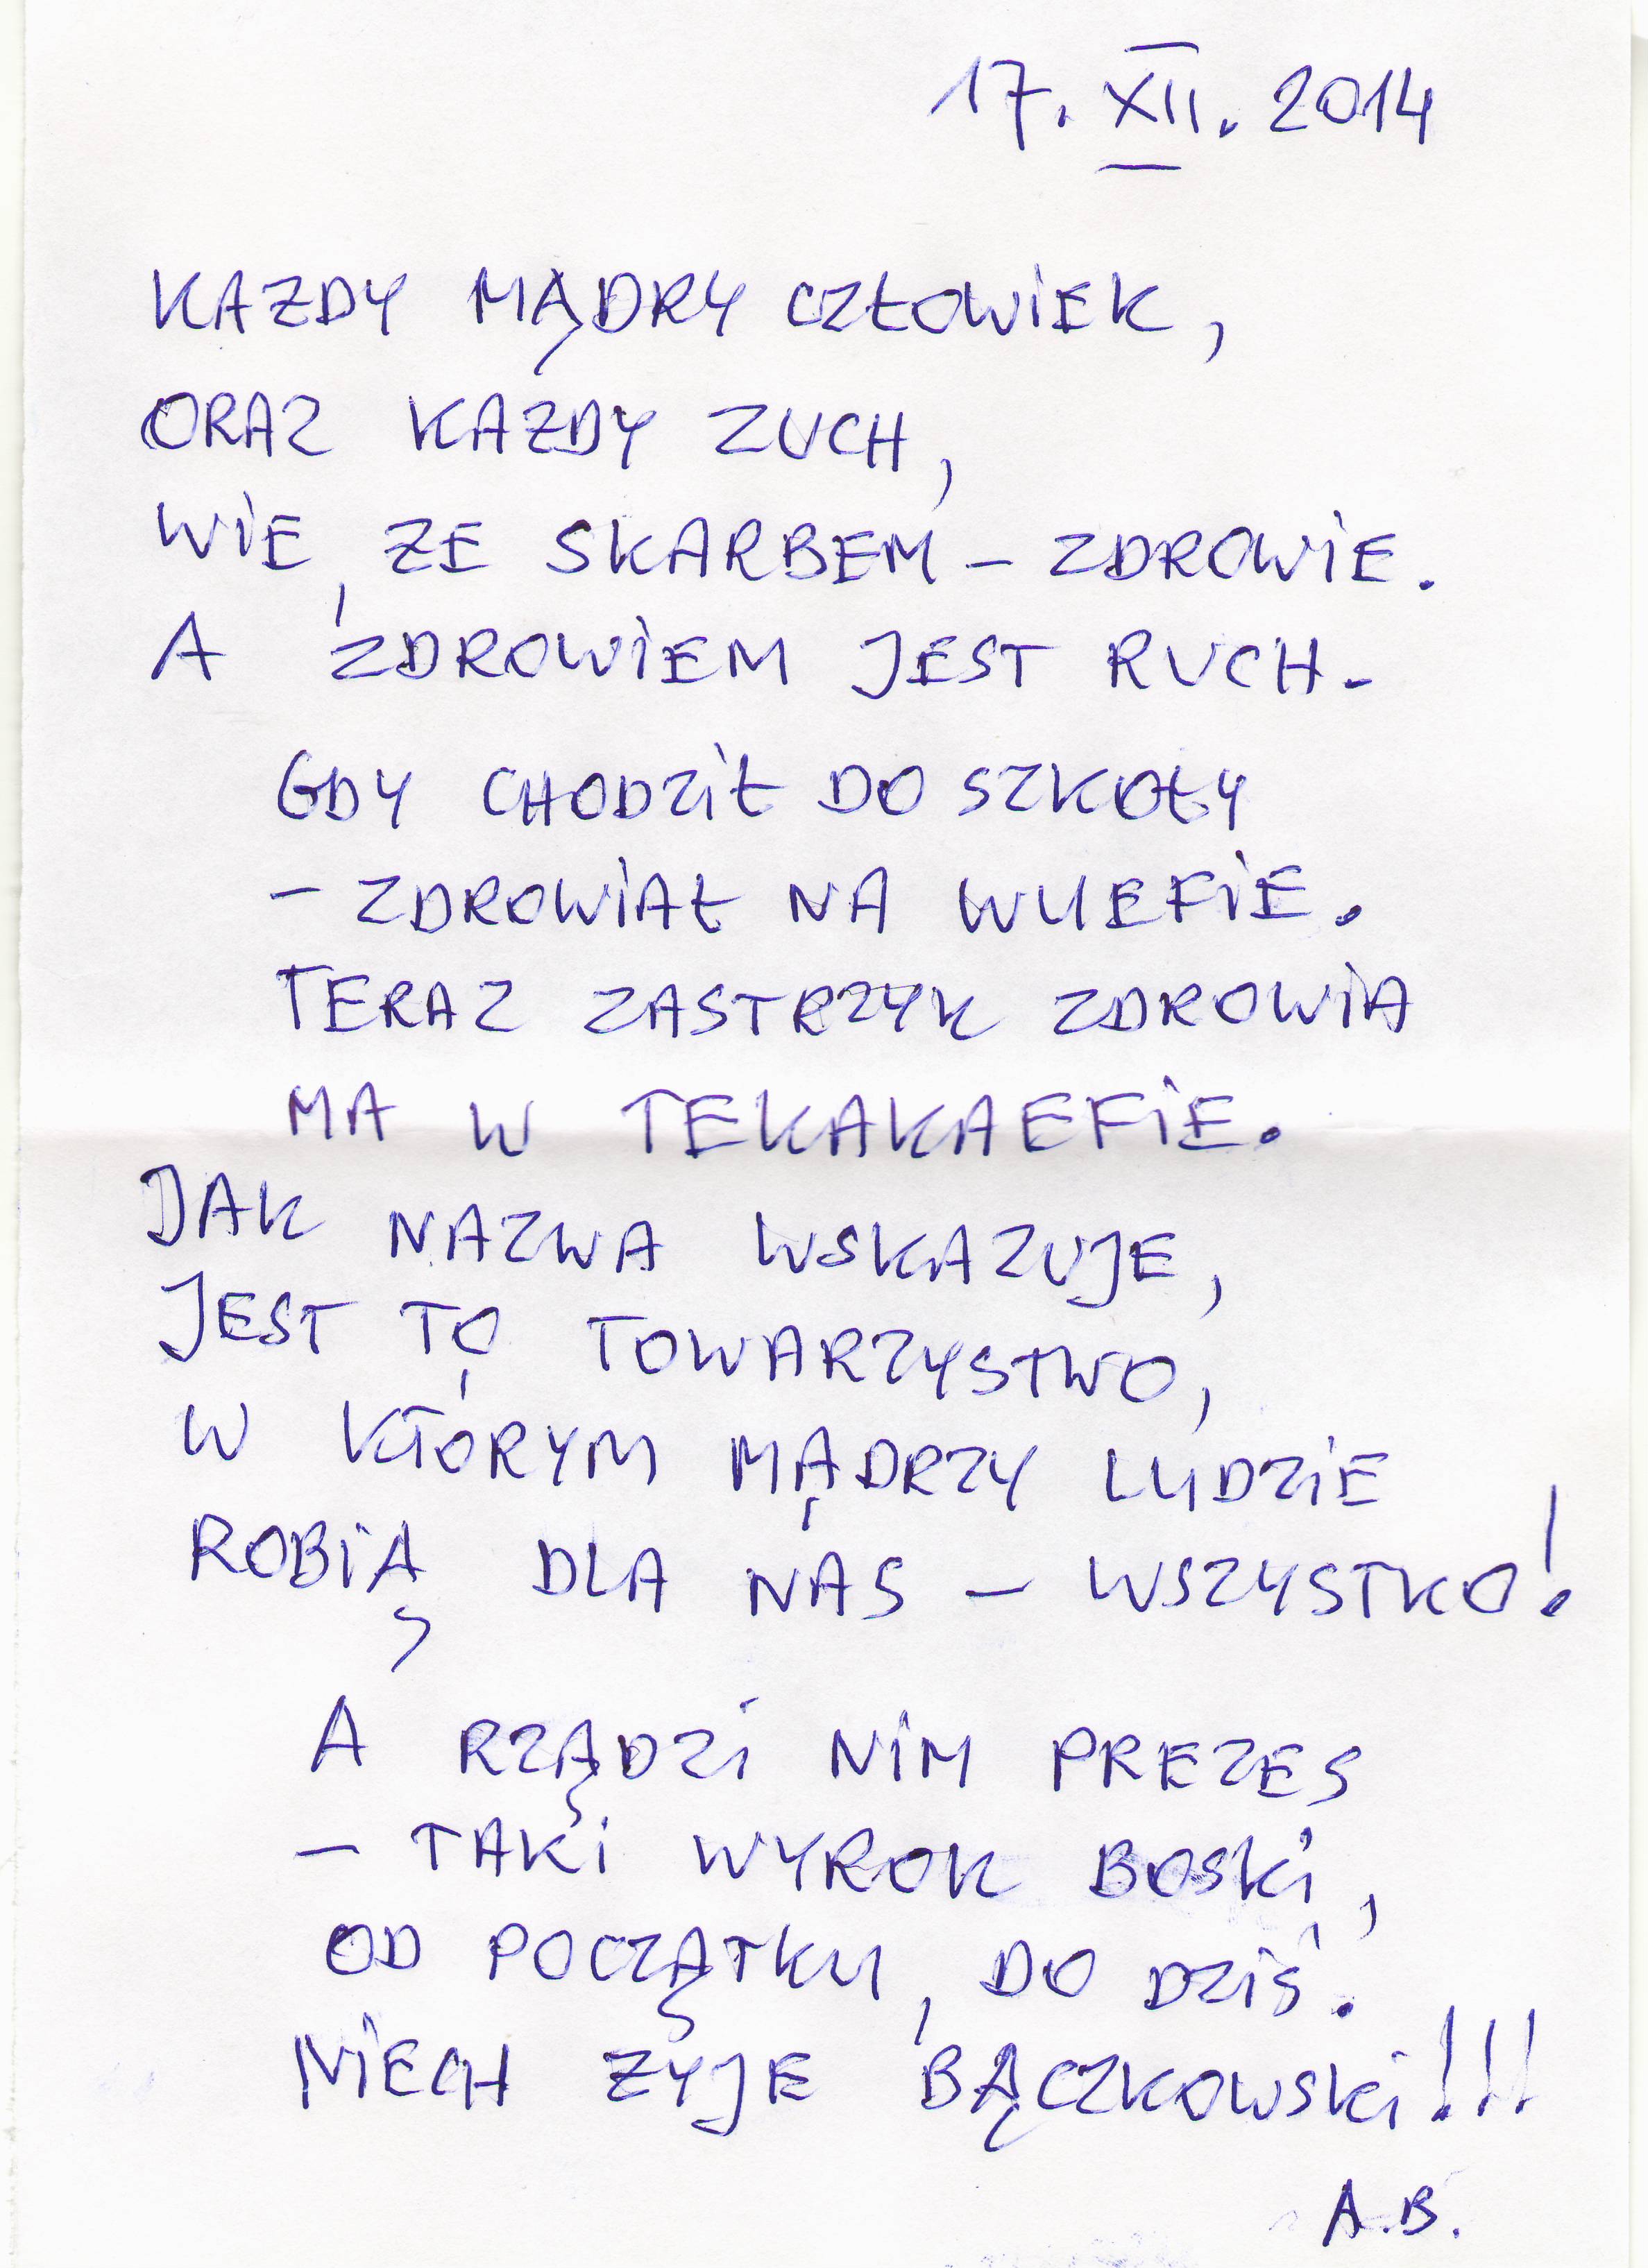 17. XII. 2014
KAŻDY MĄDRY CZŁOWIEK,
ORAZ KAŻDY ZUCH,
WIE, ŻE SKARBEM – ZDROWIE.
A ZDROWIEM JEST RUCH.
GDY CHODZIŁ DO SZKOŁY
– ZDROWIAŁ NA WUEFIE.
TERAZ ZASTRZYK ZDROWIA
MA W TEKAKAEFIE.
JAK NAZWA WSKAZUJE,
JEST TO TOWARZYSTWO,
W KTÓRYM MĄDRZY LUDZIE
ROBIĄ DLA NAS – WSZYSTKO!
A RZĄDZI NIM PREZES
– TAKI WYROK BOSKI,
OD POCZĄTKU, DO DZIŚ.
NIECH ŻYJE BĄCZKOWSKI!!!
A.B.